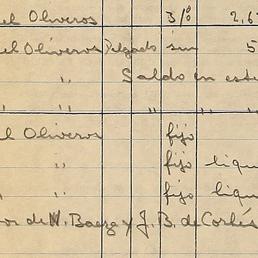 el Oliveros 3% 2,6
el Oliveros Delgado sin 5
" Saldo en este
" " "
l Oliveros fijo
" fijo liqu
" fijo liqu
or de N. Baeza y J. B. de Cortés